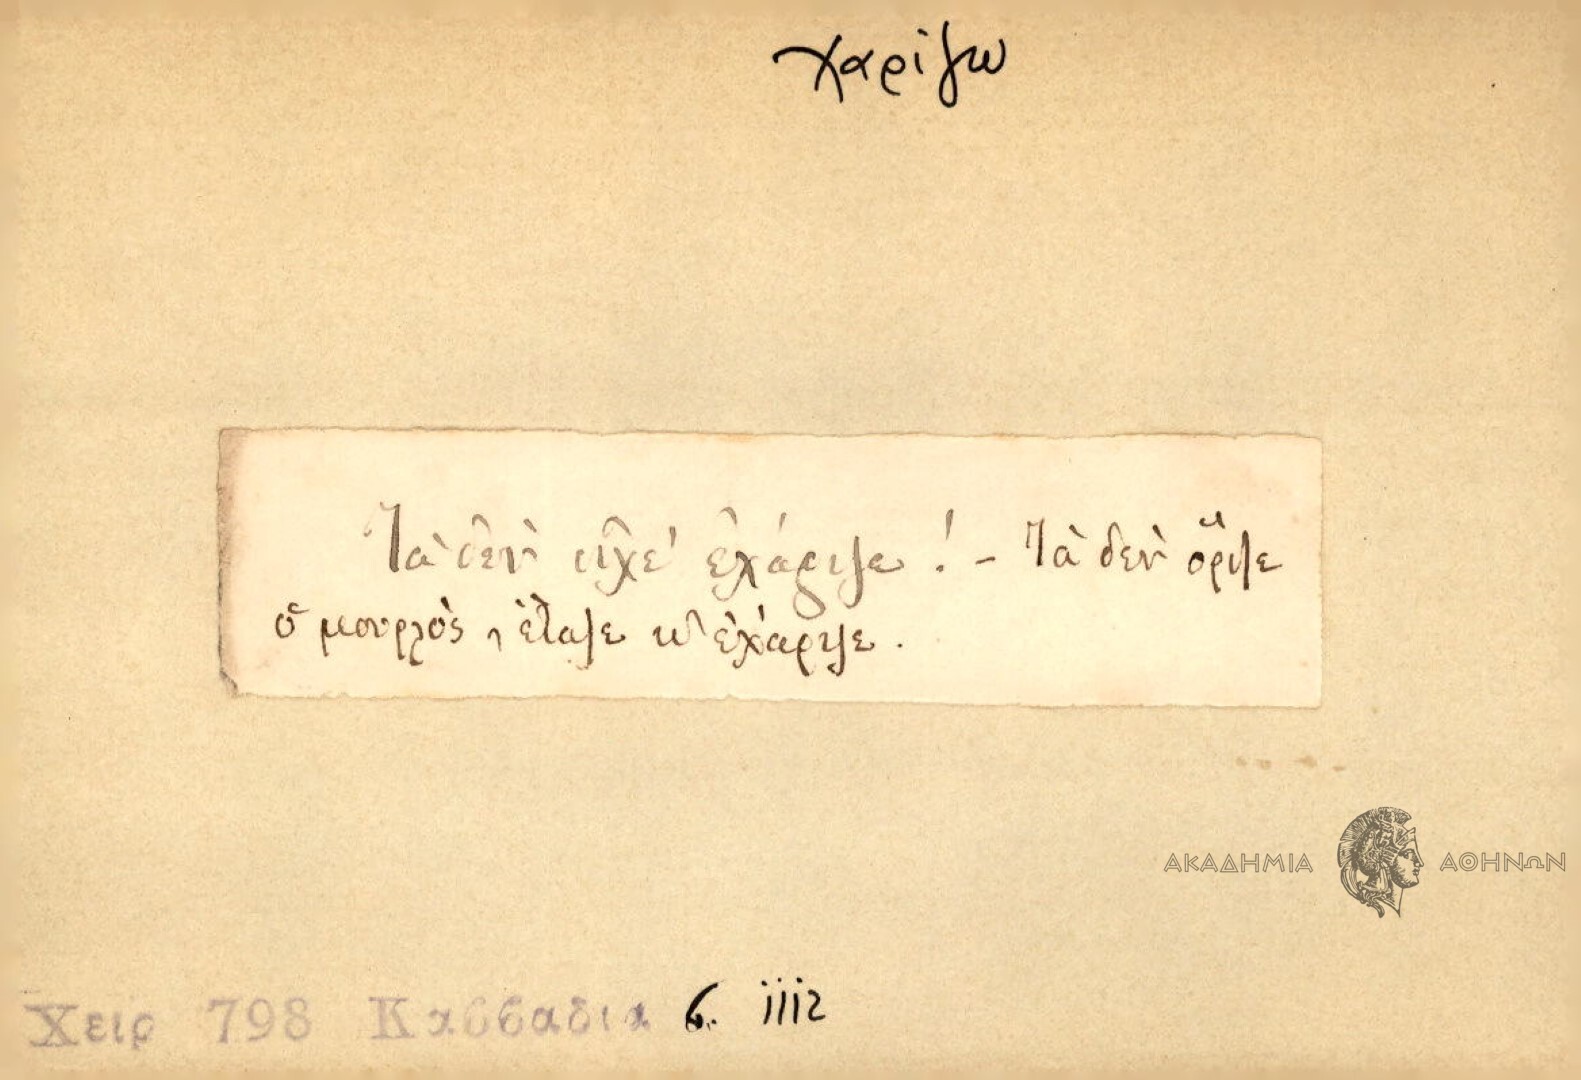 χαρίζω
Τὰ δὲν εἶχε' ἐχάριζε! – Τὰ δὲν ὅριζε
ὁ μουρλὸς, ἔταζε κ' ἐχάριζε.
ΑΚΑΔΗΜΙΑ ΑΘΗΝΩΝ
Χειρ 798 Κασσαδια σ. iiiz